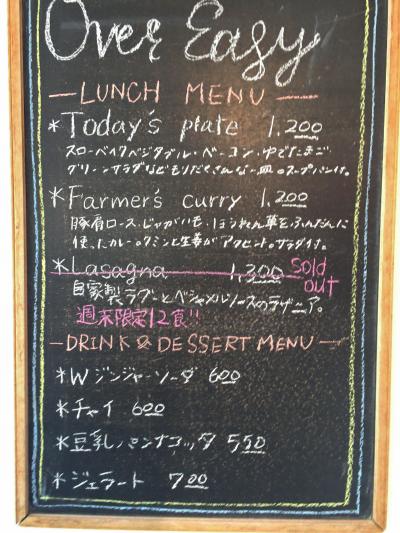 Over Easy
LUNCH MENU
*Today's plate 1,200
スローベイクベジタブル・ベーコン・ゆでたまご
グリーンサラダなどもりだくさんな一皿。スープパン付。
*Farmer's curry 1,200
豚肩ロース、じゃがいも、ほうれん草をふんだんに
使ったカレー。クミンと生姜がアクセント。サラダ付。
*Lasagna 1,300 Sold out
自家製ラグーとベシャメルソースのラザニア。
週末限定12食!!
DRINK & DESSERT MENU
*Wジンジャーソーダ 600
*チャイ 600
*豆乳パンナコッタ 550
*ジェラート 700